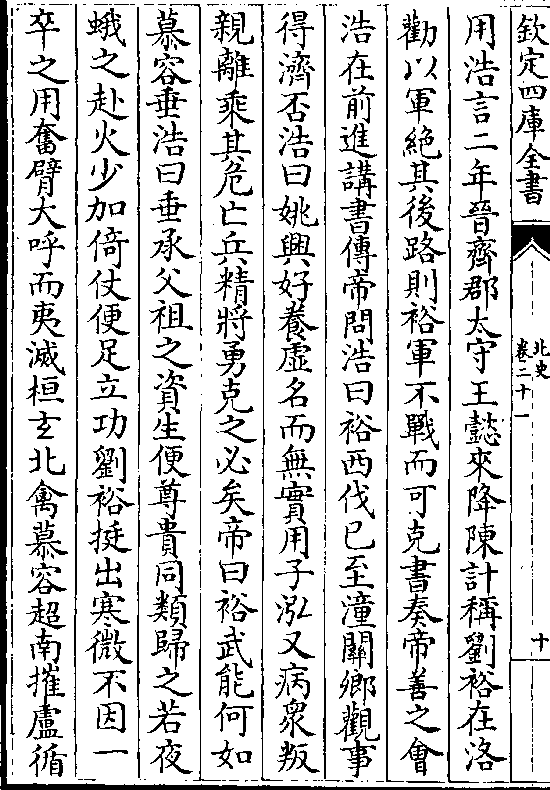 欽定四庫全書
北史
卷二十一
十
用浩言二年晉齊郡太守王懿來降陳計稱劉裕在洛
勸以軍絕其後路則裕軍不戰而可克書奏帝善之會
浩在前進講書傳帝問浩曰裕西伐已至潼關卿觀事
得濟否浩曰姚興好養虛名而無實用子泓又病衆叛
親離乘其危亡兵精將勇克之必矣帝曰裕武能何如
慕容垂浩曰垂承父祖之資生便尊貴同類歸之若夜
蛾之赴火少加倚仗便足立功劉裕挺出寒微不因一
卒之用奮臂大呼而夷滅桓玄北禽慕容超南摧盧循